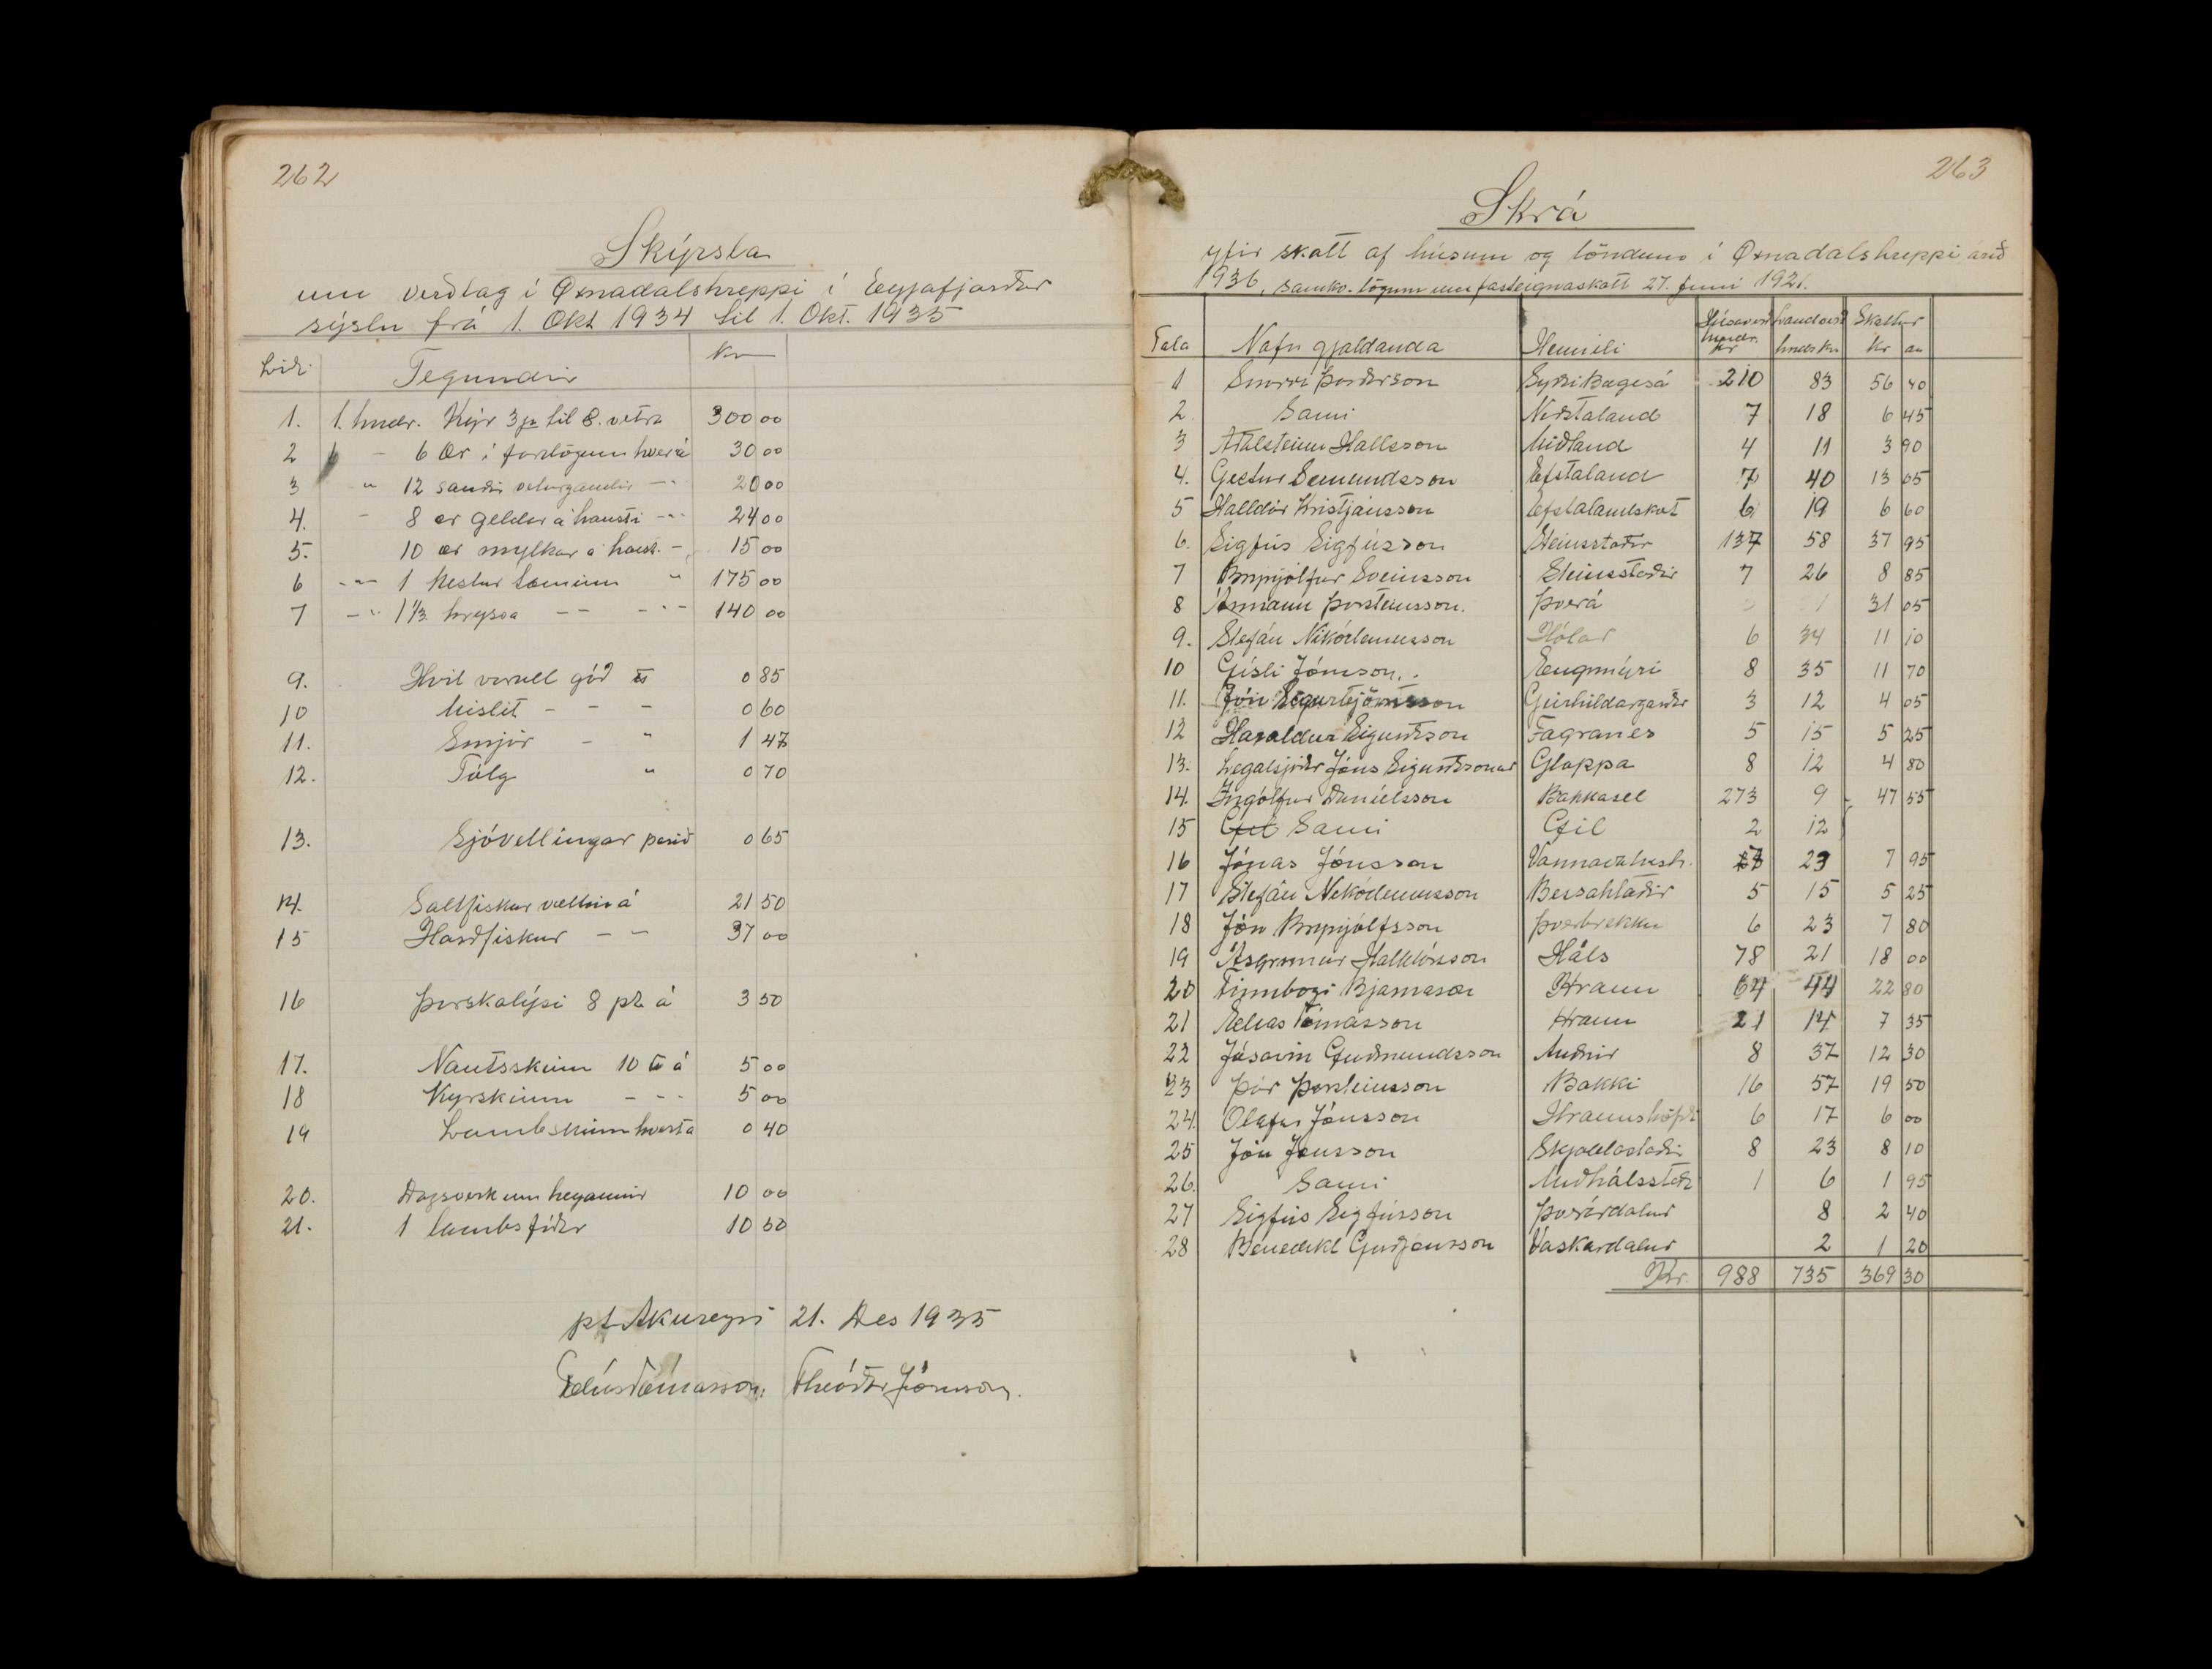 262
Skýrsla
um verðlag í Öxnadalshreppi í Eyjafjarðar
sýslu frá 1. Okt 1934 til 1. Okt. 1935
Lið. Tegundir Kr
1. 1. hndr. Kýr 3ja til 8. vetra 300 00
2 - 6 Ær í fardögum hver á 30 00
3 " 12 sauðir veturgamlir - " 20 00
4. - 8 ær geldar á hausti - " 24 00
5. 10 ær mylkar á haust. - 15 00
6 - " - 1 Hestur taminn " 175 00
7 - " 1 1/3 hryssa - - - " - 140 00
9. Hvít vorull góð 0 85
10 Mislit - - - 0 60
11. Smjör - " 1 47
12. Tólg " 0 70
13. Sjóvellingar parið 0 65
14. Saltfiskur vættin á 21 50
15 Harðfiskur - - 37 00
16 Þorskalýsi 8 pt. á 3 50
17. Nautsskinn 10 á 5 00
18 Kýrskinn - - - 5 00
19 Lambskinn hvert á 0 40
20. Dagsverk um heyannir 10 00
21. 1 lambsfóðr 10 50
pt Akureyri 21. Des 1935
Tómasson. Theódór Jónsson.
263
Skrá
yfir skatt af húsum og löndum í Öxnadalshreppi árið
1936, samkv. lögum um fasteignaskatt 27. Juni 1921.
Tala Nafn gjaldanda Heimili Húsaverð hundr. kr Landverð hndr kr Skattur kr au
1 Snorri Þorðarson Syðri Bægisá 210 83 56 40
2. Sami Neðstaland 7 18 6 45
3 Aðalsteinn Hallsson Miðland 4 11 3 90
4. Gestur Sæmundsson Efstaland 7 40 13 05
5 Halldór Kristjánsson Efstalandskot 6 19 6 60
6. Sigfús Sigfússon Steinsstaðir 137 58 37 95
7 Brynjólfur Sveinsson Steinsstaðir 7 26 8 85
8 Ármann Þorsteinsson. Þverá 31 05
9. Stefán Nikódemusson Hólar 6 34 11 10
10 Gísli Jónsson. Engimýri 8 35 11 70
11. Jón Sigurðsson Geirhildargarðar 3 12 4 05
12 Haraldur Sigurðsson Fagranes 5 15 5 25
13. Legatsjóðr Jóns Sigurðssonar Gloppa 8 12 4 80
14. Ingólfur Daníelsson Bakkasel 273 9 47 55
15 Gil Sami Gil 2 12
16 Jónas Jónsson 23 7 95
17 Stefán Nikódemusson Bessahlaðir 5 15 5 25
18 Jón Brynjólfsson Þverbrekku 6 23 7 80
19 Ásgrímur Halldórsson Háls 78 21 18 00
20 Finnbogi Bjarnason Hraun 64 44 22 80
21 Tómasson Hraun 21 14 7 35
22 Jósavin Guðmundsson Auðnir 8 37 12 30
23 Þór Þorsteinsson Bakki 16 57 19 50
24. Ólafur Jónsson Hraunshöfði 6 17 6 00
25 Jón Jónsson Skjaldastaðir 8 23 8 10
26. Sami Miðhálsstðr 1 6 1 95
27 Sigfús Sigfússon Þverárdalur 8 2 40
28 Benedikt Guðjónsson Vaskárdalur 2 1 20
Kr. 988 735 369 30